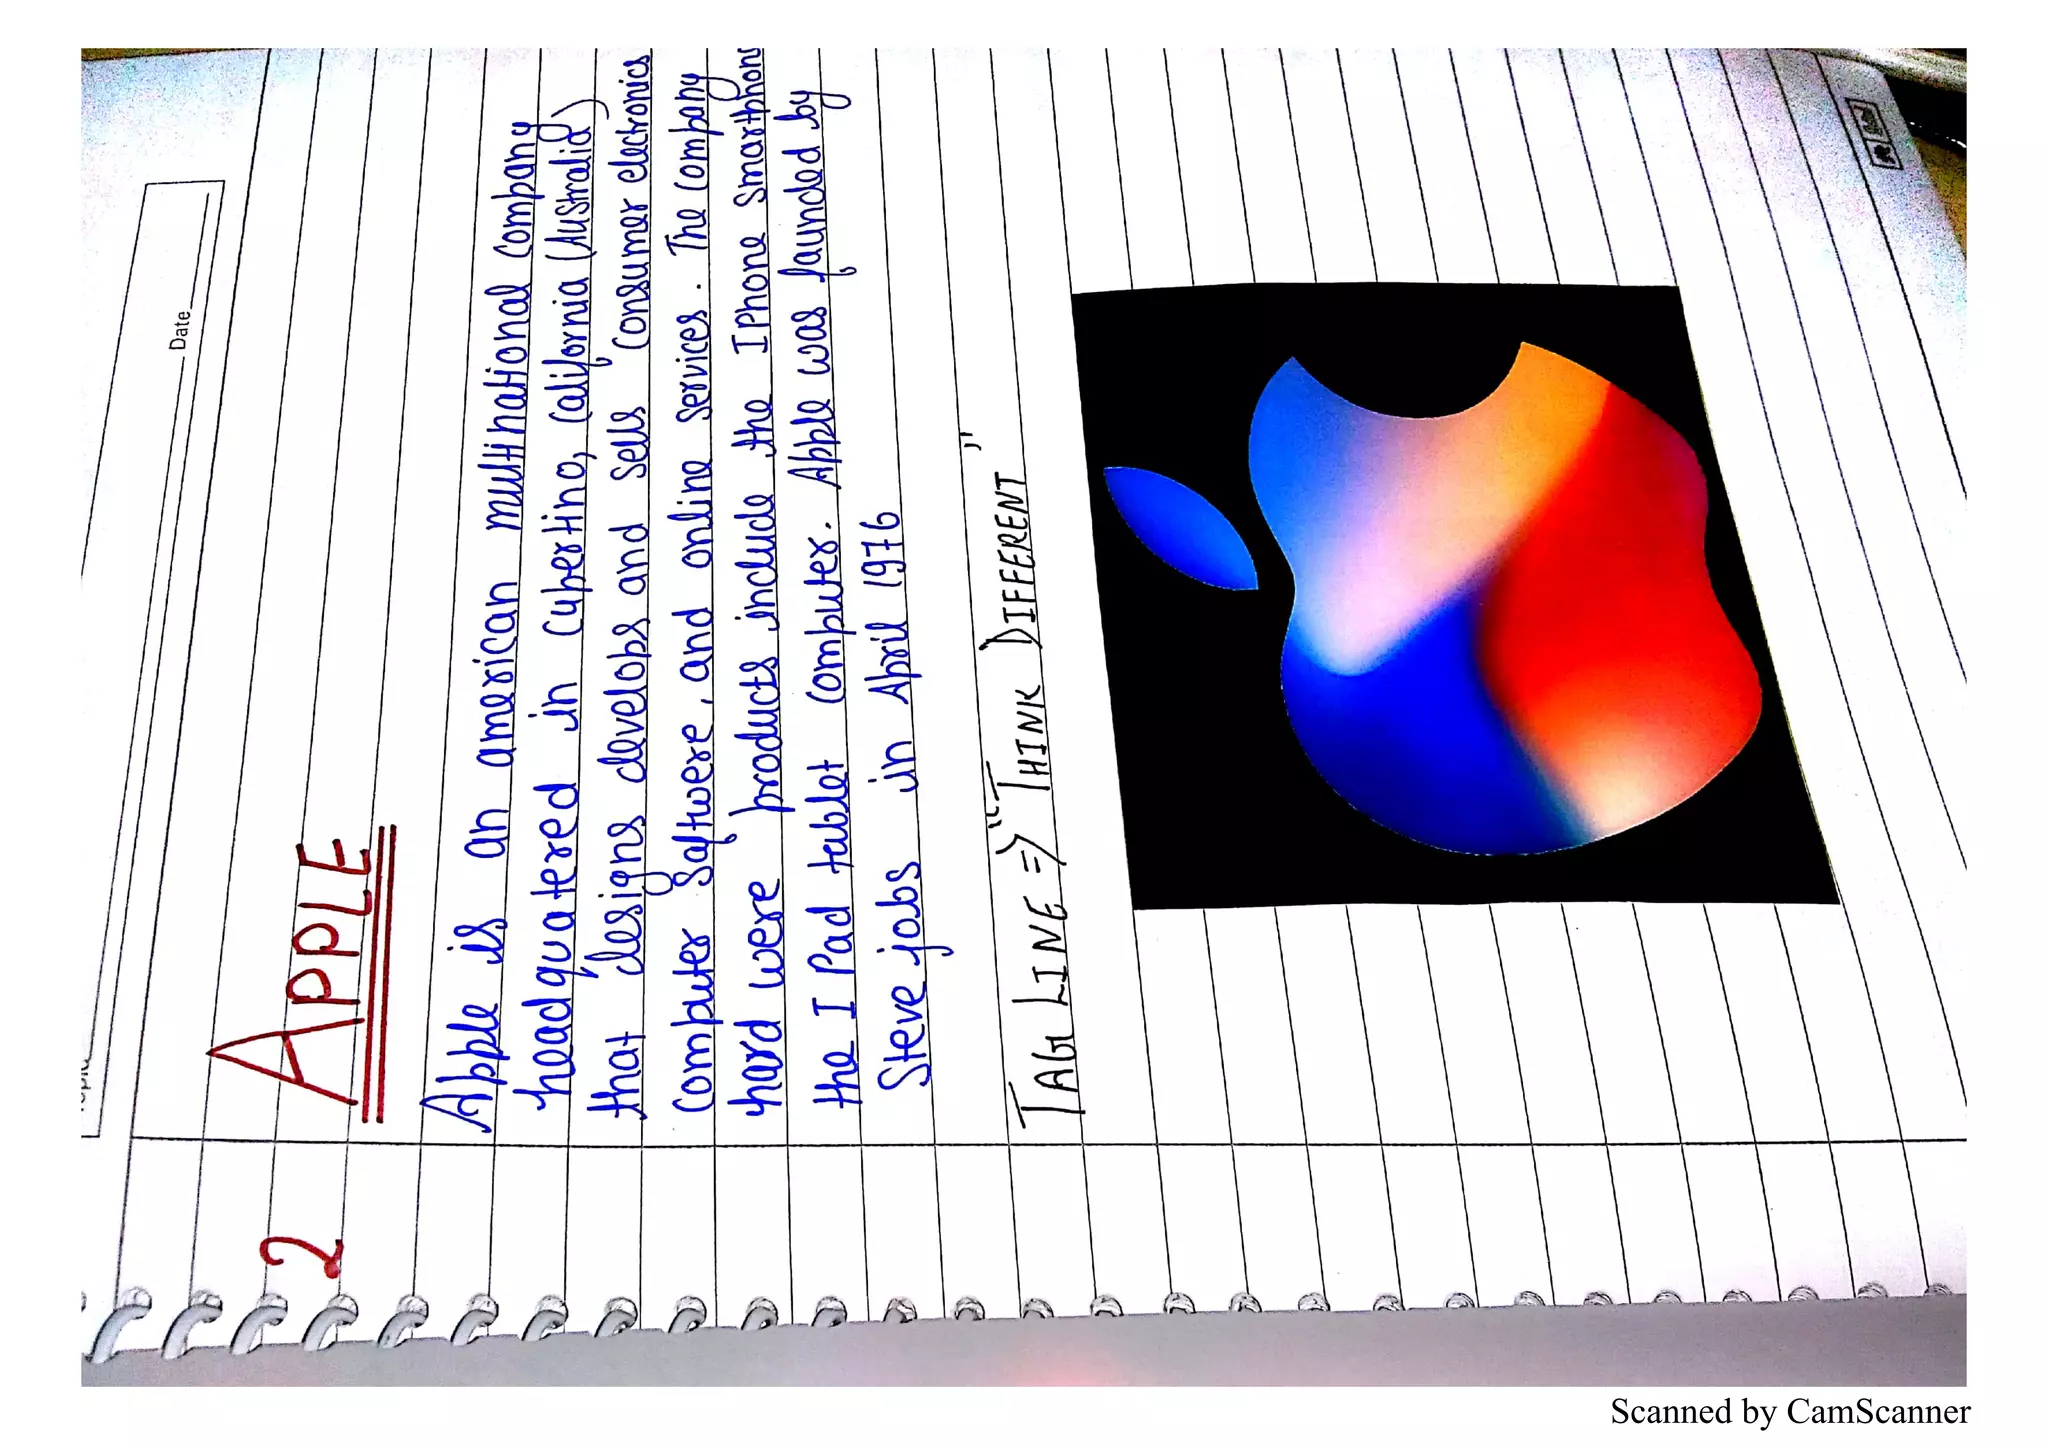 Date
2 APPLE
Apple is an american multinational company
headquatered in cupertino, california (Australia)
that designs develops and sells consumer electronics
computer saftwere, and online services. The company
hard were products include the I Phone smartphone
the I Pad tablet computer. Apple was faunded by
Steve jobs in April 1976
TAG LINE => "THINK DIFFERENT"
Scanned by CamScanner